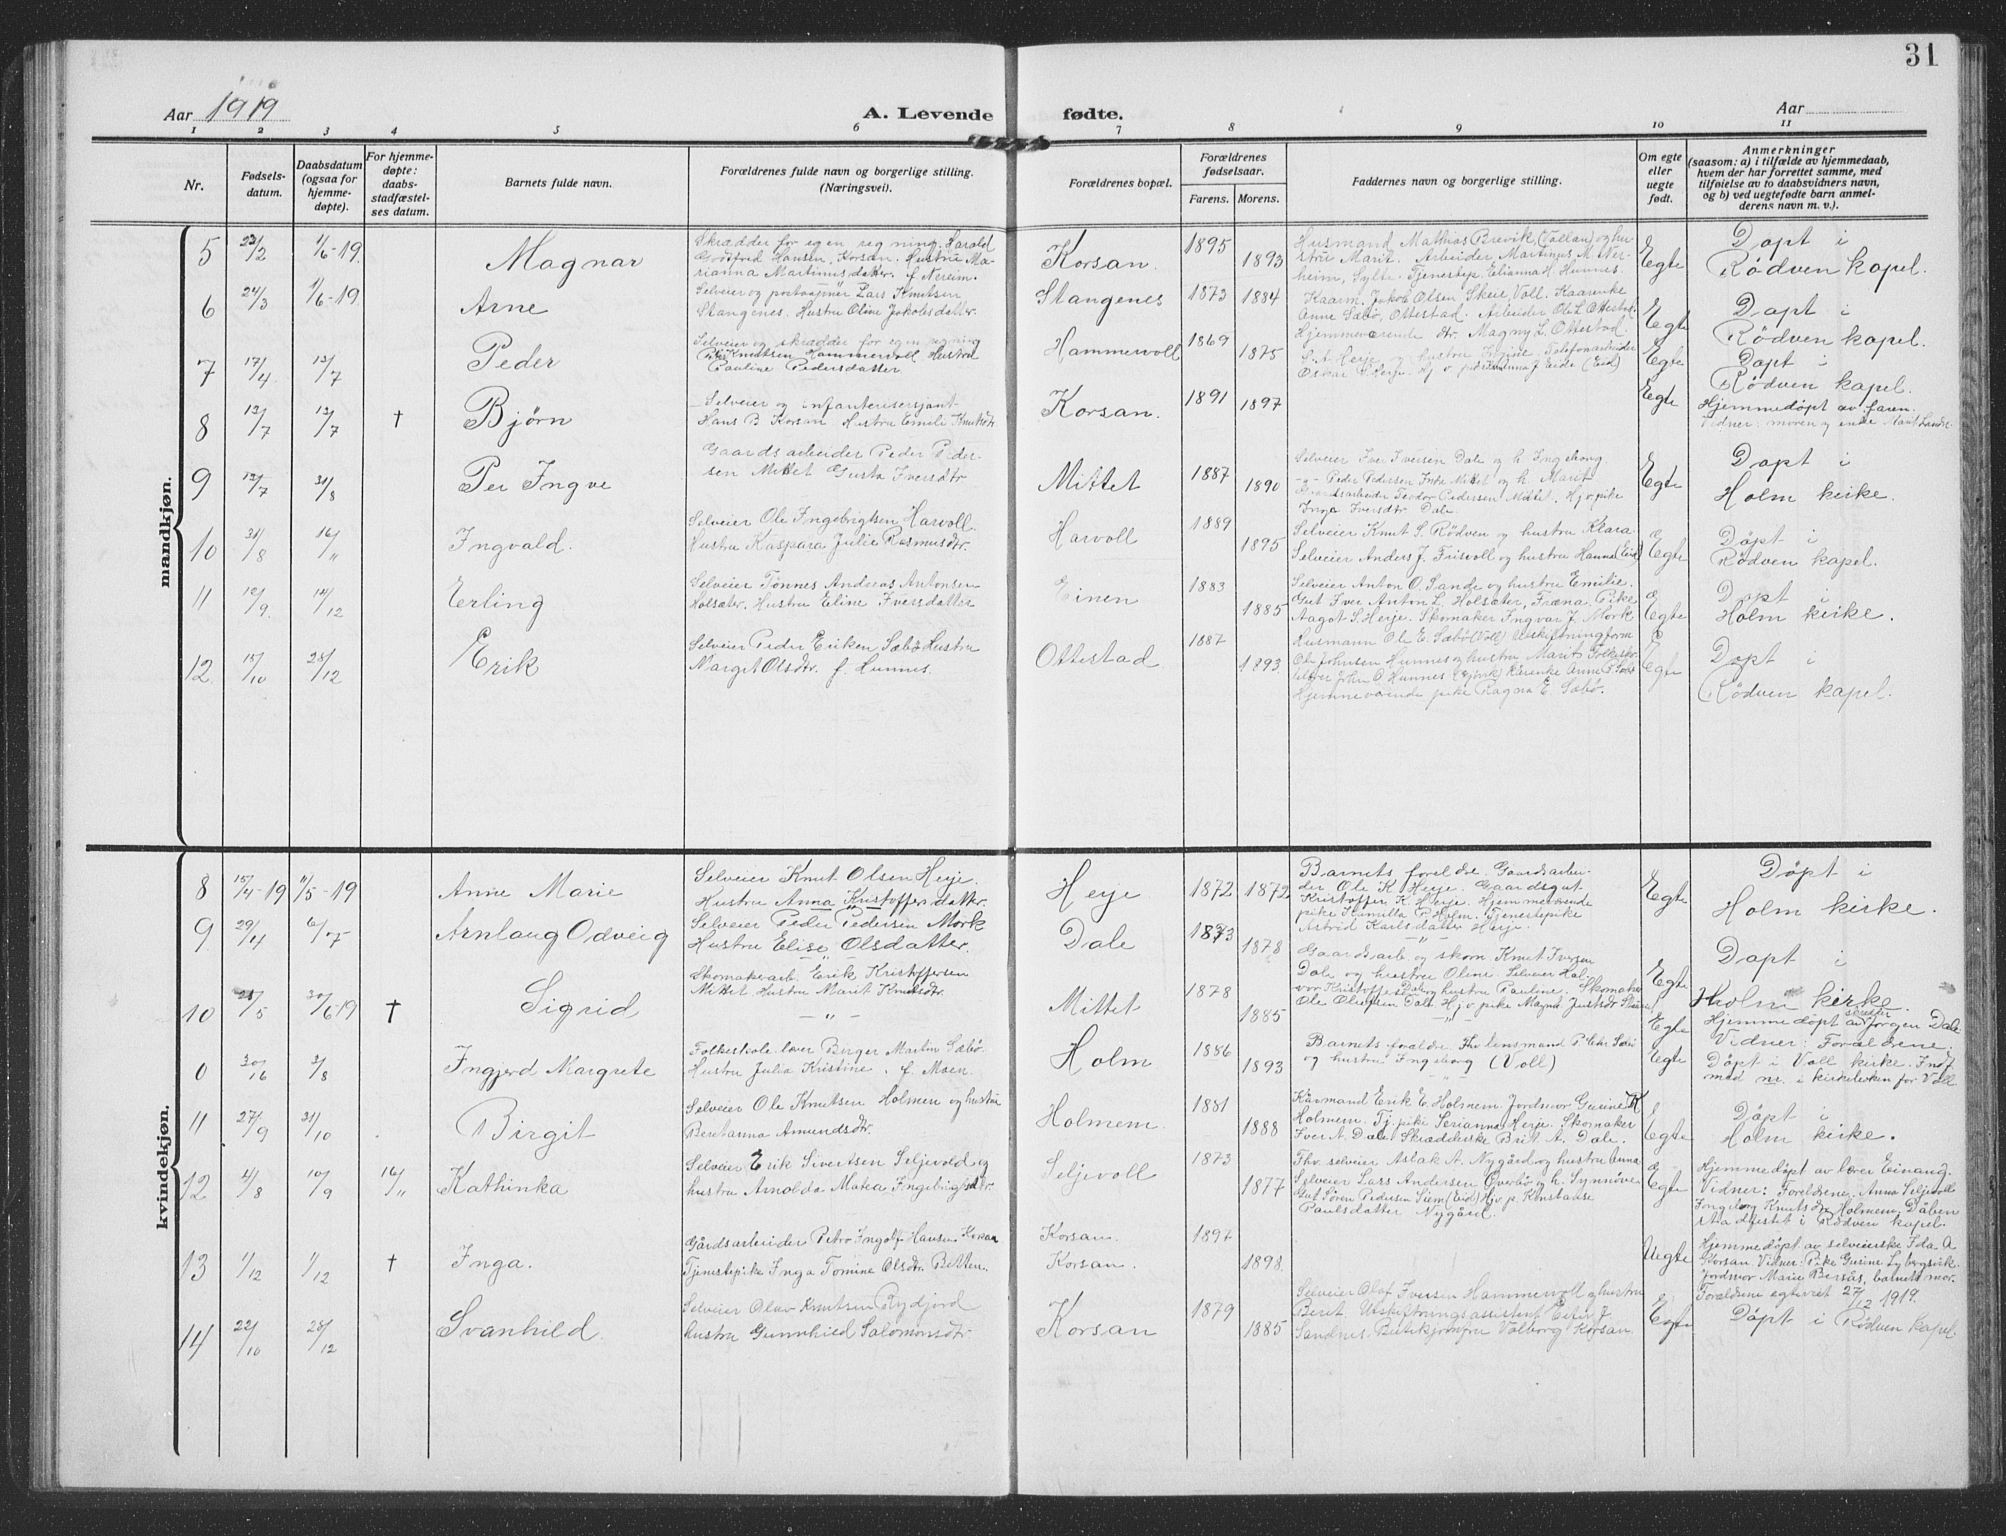 31
Aar 1919
A. Levende fødte.
Aar
1 2 3 4 5 6 7 8 9 10 11
Nr.
Fødsels-
datum.
Daabsdatum
(ogsaa for
hjemme-
døpte).
For hjemme-
døpte:
daabs-
stadfæstel-
ses datum.
Barnets fulde navn.
Forældrenes fulde navn og borgerlige stilling.
(Næringsvei).
Forældrenes bopæl.
Forældrenes
fødselsaar.
Farens. Morens.
Faddernes navn og borgerlige stilling.
Om egte
eller
uegte
født.
Anmerkninger
(saasom: a) i tilfælde av hjemmedaab,
hvem der har forrettet samme, med
tilføielse av to daabsvidners navn,
og b) ved uegtefødte barn anmel-
derens navn m. v.).
mandkjøn.
5 23/2 1/6-19. Magnar
Skrædder for egen regning Harald
Godtfred Hansen, Korsan. Hustru Ma-
rianna Martinusdatter f. Nereim.
Korsan. 1895 1893
Husmand Mathias Brevik (Vollan) og hu-
stru Marit. Arbeider Martinus M. Ner-
heim, Sylte. Tjenestep. Elianna H. Hunnes.
Egte
Døpt i
Rødven kapel.
6 24/3 1/6-19 Arne
Selveier og postaapner Lars Knutsen
Stangenes. Hustru Oline Jakobsdatter.
Stangenes 1873 1884
Kaarm. Jakob Olsen Skeie, Voll. Kaarenke
Anne Sæbø, Ottestad. Arbeider Ole L. Ottestad.
Hjemmeværende dtr. Magny L. Ottestad.
Egte
Døpt i
Rødven kapel.
7 17/4 13/7 Peder
Selveier og skrædder for egen regning
Knudtsen Hammervoll Hustru
Pauline Pedersdatter
Hammervoll 1869 1875
Herje og hustru Telefonarbeider
Oskar Herje. Eide (Eid)
Egte
Døpt i
Rødven kapel.
8 12/7 13/7 † Bjørn
Selveier og infanterisersjant
Hans B Korsan Hustru Emilie Knutsdtr
Korsan. 1891 1897
Egte
Hjemmedøpt av faren.
Vidner: moren og enke
9 12/7 31/8 Per Ingve
Gaardsarbeider Peder Peder-
sen Mittet Gusta Iversdtr
Mittet 1887 1890
Selveier Iver Iversen Dale og h. Ingeborg
-"- Peder Pedersen Mittet og h. Marit
Gaardsarbeider Teodor Pedersen Mittet. Hj.v. pike
Inga Iversdtr Dale.
Egte
Døpt i
Holm kirke.
10 31/8 16/11 Ingvald.
Selveier Ole Ingebrigtsen Harvoll.
Hustru Kaspara Julie Rasmusdtr.
Harvoll 1889 1895
Selveier Knut S. Rødven og hustru Klara
Selveier Anders J. Frisvoll og hustru Hanna (Eid)
Egte
Døpt i
Rødven kapel.
11 12/9. 14/12 Erling
Selveier Tønnes Andreas Antonsen
Holsæter. Hustru Eline Iversdatter
Einen 1883 1885
Selveier Anton O. Sande og hustru Emilie.
Gut Iver Anton L. Holsæter, Fræna. Pike
Aagot S. Herje. Skomaker Ingvar J. Mork
Egte
Døpt i
Holm kirke.
12 15/10 28/12 Erik
Selveier Peder Eriksen Sæbø Hustru
Margit Olsdtr. f. Hunnes.
Ottestad 1887 1893.
Husmann Ole E. Sæbø (Voll) Utskiftningform.
Ole Johnsen Hunnes og hustru Marit
John O. Hunnes Kårenke Anne P. Sæbø
Hjemmeværende pike Ragna E. Sæbø.
Egte
Døpt i
Rødven kapel.
kvindekjøn.
8 15/4-19 11/5-19 Anne Marie
Selveier Knut Olsen Herje.
Hustru Anna Kristoffersdatter.
Herje 1872 1872
Barnets foreldre. Gaardsarbei-
der Ole K. Herje. Gaardsgut
Kristoffer K. Herje. Hjemmeværende
pike Kamilla P. Holm. Tjenestepike
Astrid Karlsdatter Herje.
Egte
Døpt i
Holm kirke.
9 29/4 6/7 Arnlaug Odveig
Selveier Peder Pedersen Mork
Hustru Elise Olsdatter.
Dale 1873 1878
Gaardsarb og skom Knut Iversen
Dale og hustru Oline. Selveier Hal-
vor Kristoffersen Dale og hustru Pauline. Skomaker
Ole Olufsen Dale Hj.v. pike Magna
Egte
Døpt i
Holm kirke.
10 28/5 30/6-19 † Sigrid
Skomakerarb. Erik Kristoffersen
Mittet. Hustru Marit Knutsdtr.
-"-
Mittet 1878 1885
-"-
Egte
Hjemmedøpt av Jørgen Dale
Vidner: Forældrene.
0 30/16 3/8 Ingjerd Margrete
Folkeskolelærer Birger Martin Sæbø.
Hustru Julia Kristine. f. Moen.
Holm 1886 1893
Barnets foreldre. Fhv. lensmand P. Sæbø
og hustru Ingeborg (Voll)
Egte
Døpt i Voll kirke. Indf.
med nr. i kirkeboken for Voll
11 27/9 31/10 Birgit
Selveier Ole Knutsen Holmen og hustru
Beretanna Amundsdtr.
Holmem. 1881 1888
Kårmand Erik E. Holmem. Jordmor Gurine K
Holmem. Tj. pike Serianna Herje. Skomaker
Iver A. Dale. Skrædderske Brit A. Dale.
Egte
Døpt i
Holm kirke.
12 4/8 10/9 16/11 Kathinka
Selveier Erik Sivertsen Seljevold og
hustru Arnolda Matea Ingebrigtsdtr.
Seljevoll 1873 1877
Fhv. selveier Aslak A. Nygård og hustru Anna
Selveier Lars Andersen Øverbø og h. Synnøve
Gut Søren Pedersen Siem (Eid) Hj.v. p. Konstanse
Paulsdatter Nygård.
Egte
Hjemmedøpt av lærer Einang.
Vidner: Forældrene, Anna Seljevoll
Ingeborg Knutsdtr Holmem. Dåben
stadfestet i Rødven kapel.
13 1/12 1/12 † Inga.
Gårdsarbeider Petro Ingolf Hansen Korsan
Tjenestepike Inga Tomine Olsdtr. Betten.
Korsan. 1897
Korsan. 1898
Uegte
Hjemmedøpt av selveierske Ida A
Korsan. Vidner: Pike Gurine Lybergsvik.
Jordmor Marie Bersås, barnets mor.
Forældrene egteviet 27/12 1919.
14 22/10 28/12 Svanhild.
Selveier Olav Knutsen Rydjord
hustru Gunnhild Salomonsdtr
Korsan 1879 1885
Selveier Olaf Iversen Hammervoll og hustru
Beret. Utskiftningsassistent Peter J.
Sandnes. Butikjomfru Valborg Korsan.
Egte
Døpt i Rødven kapel.